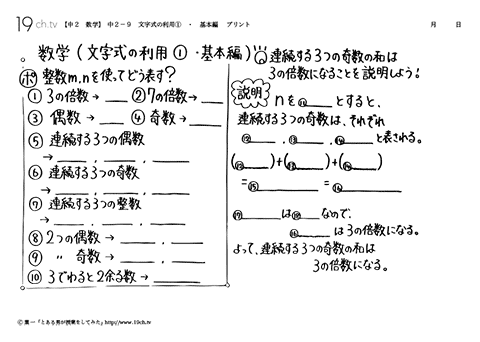 19 ch.tv 【中2 数学】 中2-9 文字式の利用① ・ 基本編 プリント 月 日
。数学(文字式の利用①・基本編)
ポ 整数m,nを使ってどう表す?
① 3の倍数→ ② 7の倍数→
③ 偶数→ ④ 奇数→
⑤ 連続する3つの偶数
→ , ,
⑥ 連続する3つの奇数
→ , ,
⑦ 連続する3つの整数
→ , ,
⑧ 2つの偶数→ ,
⑨ 〃 奇数→ ,
⑩ 3でわると2余る数→
連続する3つの奇数の和は
3の倍数になることを説明しよう!
説明 nを⑪ とすると、
連続する3つの奇数は、それぞれ
⑫ , ⑬ , ⑭ と表される。
(⑫ )+(⑬ )+(⑭ )
=⑮ =⑯
⑰ は⑱ なので、
⑯ は3の倍数になる。
よって、連続する3つの奇数の和は
3の倍数になる。
© 葉一「とある男が授業をしてみた」http://www.19ch.tv